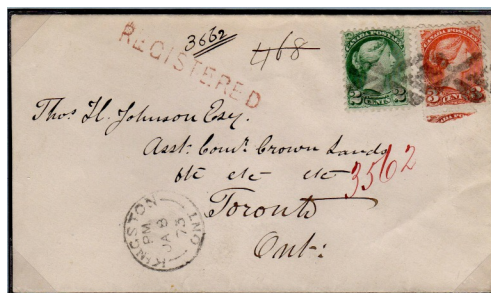 3662
REGISTERED
468
CANADA POSTAGE
2 CENTS 2
CANADA POSTAGE
3 CENTS 3
Thos. H. Johnson Esq.
Asst: Comr. Crown Lands
etc etc etc
3562
Toronto
Ont:
KINGSTON ONT
PM
JA 8
73